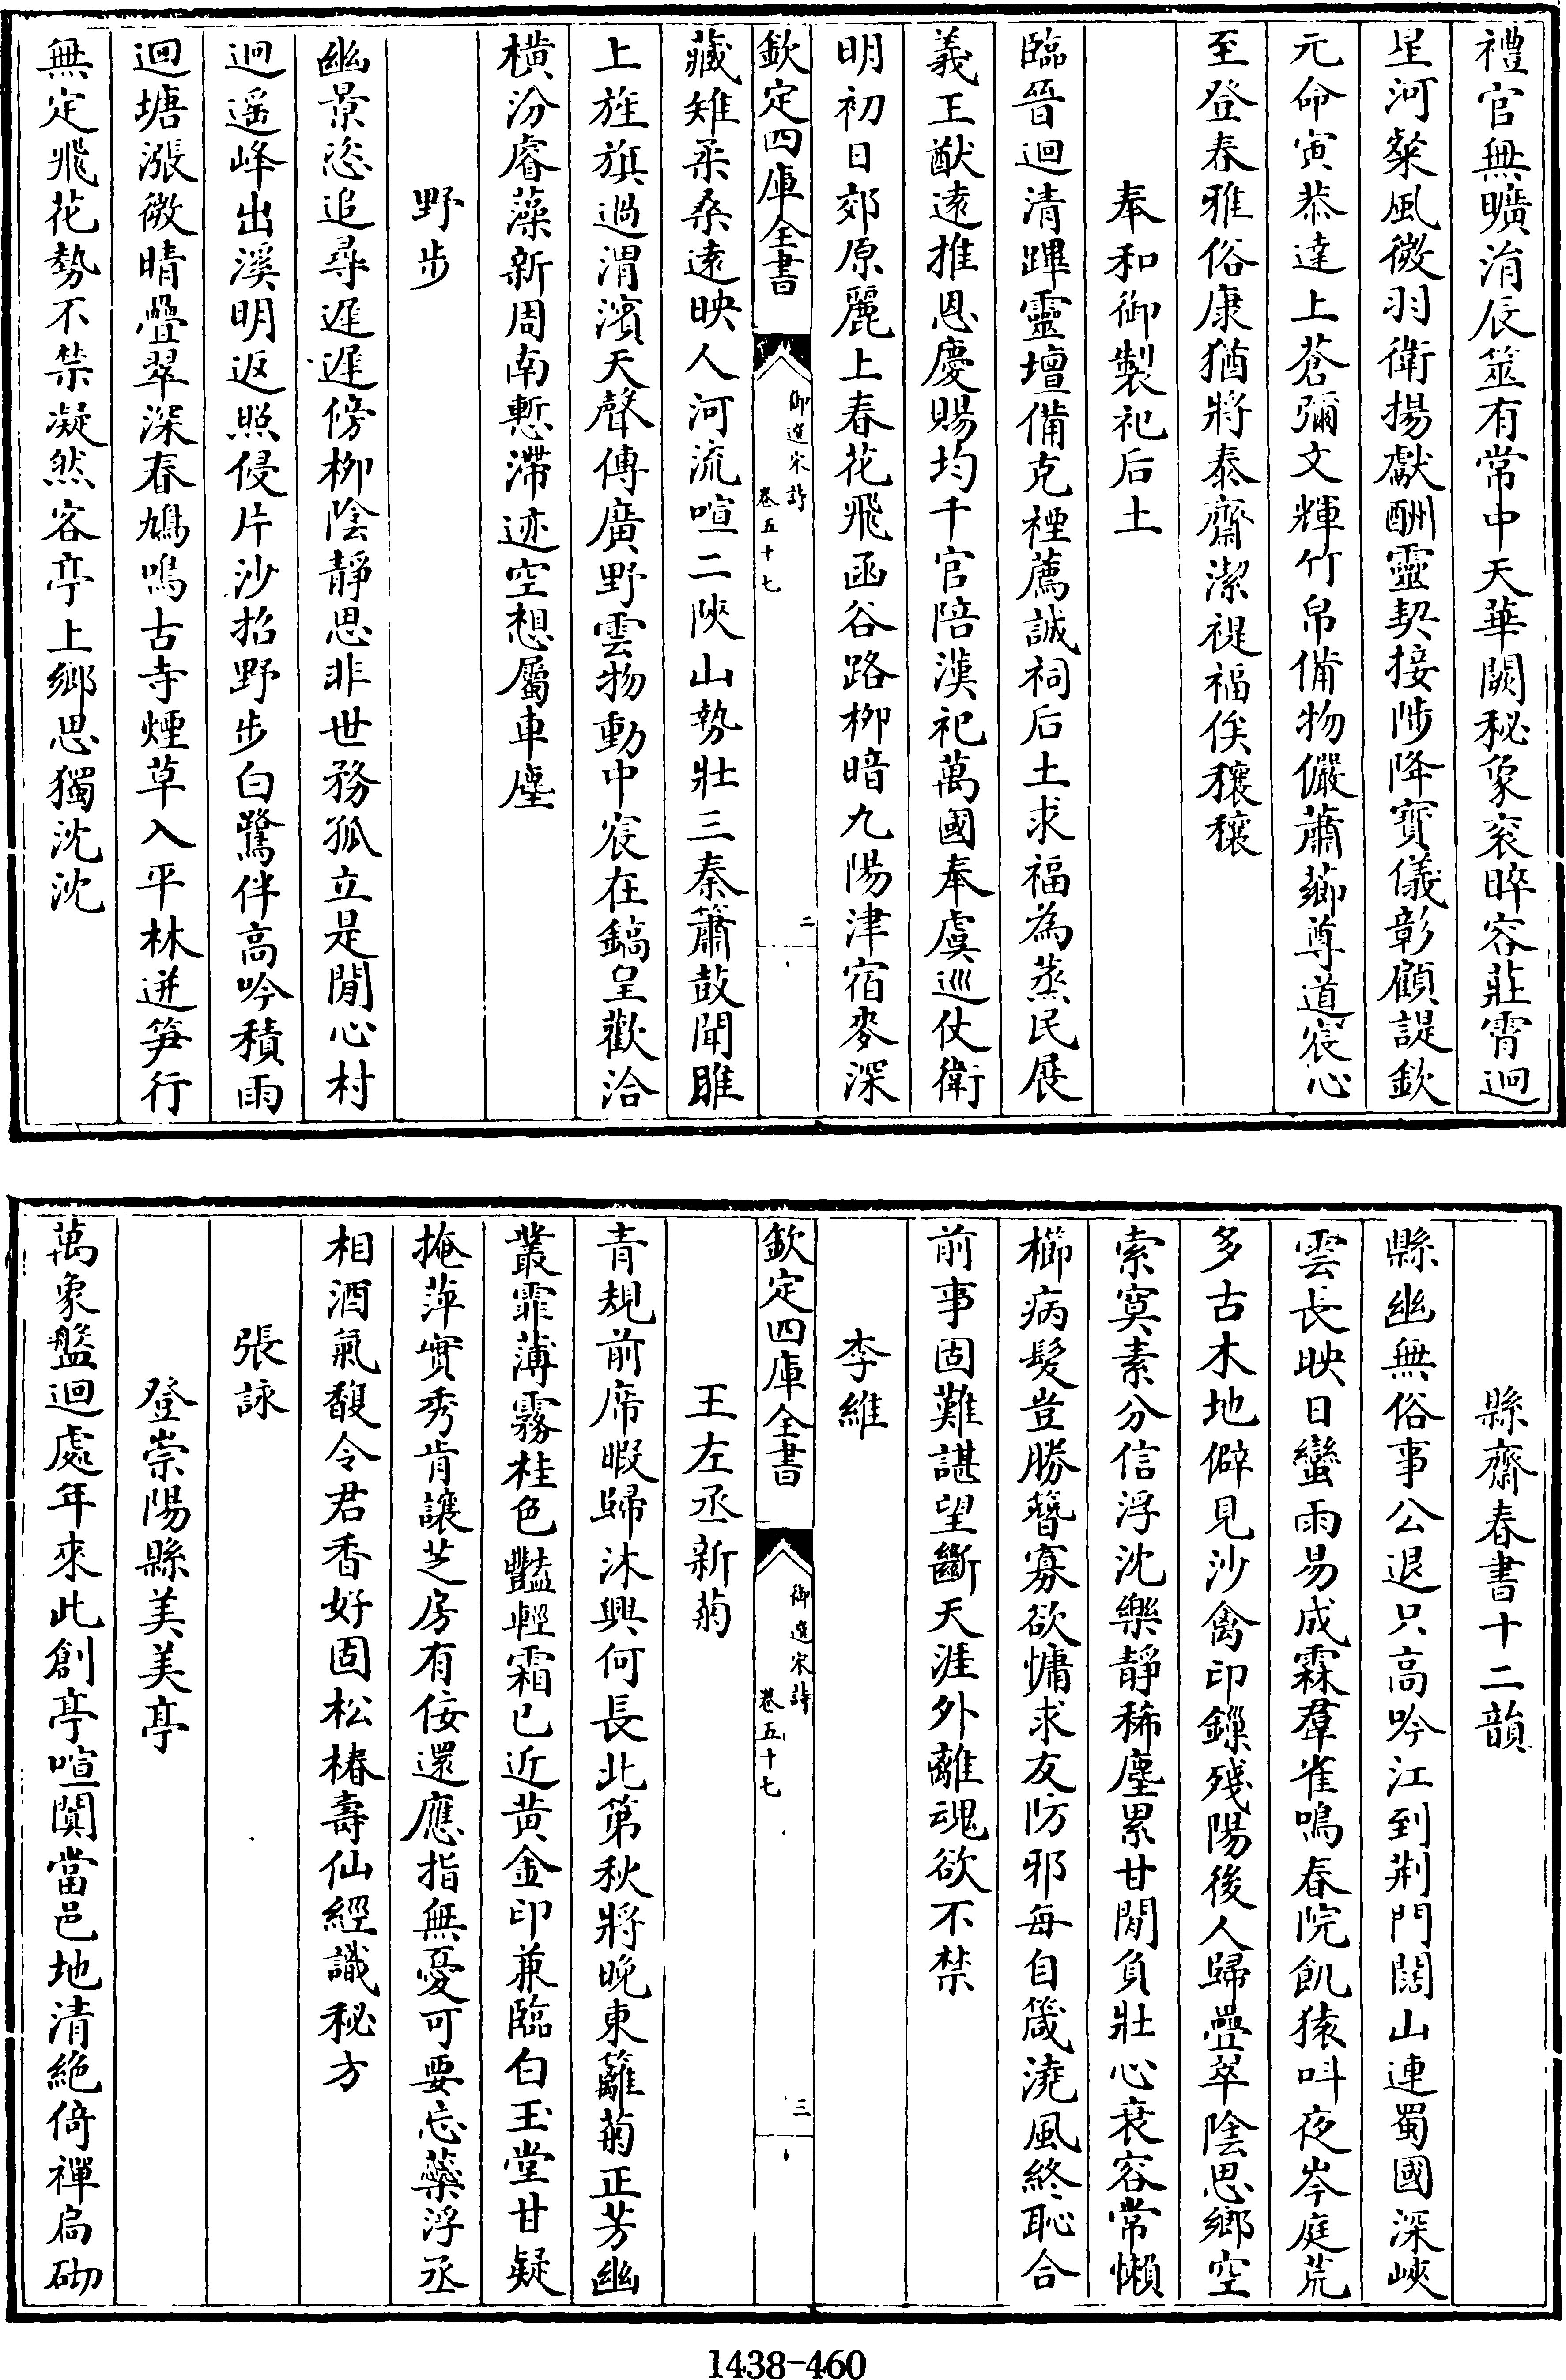 禮官無曠涓辰筮有常中天華闕秘象衮晬容莊霄迥
星河粲風微羽衛揚獻酬靈契接陟降寶儀彰顧諟欽
元命寅恭達上蒼彌文輝竹帛備物儼蕭薌尊道宸心
至登春雅俗康猶將泰齋潔禔福俟穰穰
奉和御製祀后土
臨晉迴清蹕靈壇備克禋薦誠祠后土求福為蒸民展
義王猷遠推恩慶賜均千官陪漢祀萬國奉虞巡仗衛
明初日郊原麗上春花飛函谷路柳暗九陽津宿麥深
欽定四庫全書
御選宋詩
卷五十七
二
藏雉柔桑遠映人河流喧二陜山勢壯三秦簫鼓聞雎
上旌旗過渭濱天聲傳廣野雲物動中宸在鎬呈歡洽
橫汾睿藻新周南慙滯迹空想屬車塵
野步
幽景恣追尋遲遲傍柳陰靜思非世務孤立是閒心村
迥遥峰出溪明返照侵片沙招野步白鷺伴高吟積雨
迴塘漲微晴疊翠深春鳩鳴古寺煙草入平林迸笋行
無定飛花勢不禁凝然客亭上鄉思獨沈沈
縣齋春書十二韻
縣幽無俗事公退只高吟江到荆門闊山連蜀國深峽
雲長映日蠻雨易成霖羣雀鳴春院飢猿呌夜岑庭荒
多古木地僻見沙禽印鏁殘陽後人歸疊翠陰思鄉空
索寞素分信浮沈樂靜稀塵累甘閒負壯心衰容常懶
櫛病髮豈勝簪寡欲慵求友防邪每自箴澆風終恥合
前事固難諶望斷天涯外離魂欲不禁
李維
欽定四庫全書
御選宋詩
卷五十七
三
王左丞新菊
青規前席暇歸沐興何長此第秋將晚東籬菊正芳幽
叢霏薄霧桂色豔輕霜已近黃金印兼臨白玉堂甘疑
掩萍實秀肯讓芝房有佞還應指無憂可要忘藥浮丞
相酒氣馥令君香好固松椿壽仙經識秘方
張詠
登崇陽縣美美亭
萬象盤迴處年來此創亭喧闐當邑地清絶倚禪扃砌
1438-460